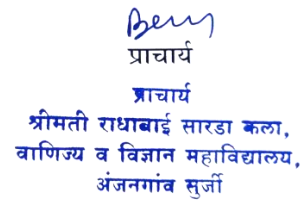 प्राचार्य
प्राचार्य
श्रीमती राधाबाई सारडा कला,
वाणिज्य व विज्ञान महाविद्यालय,
अंजनगांव सुर्जी